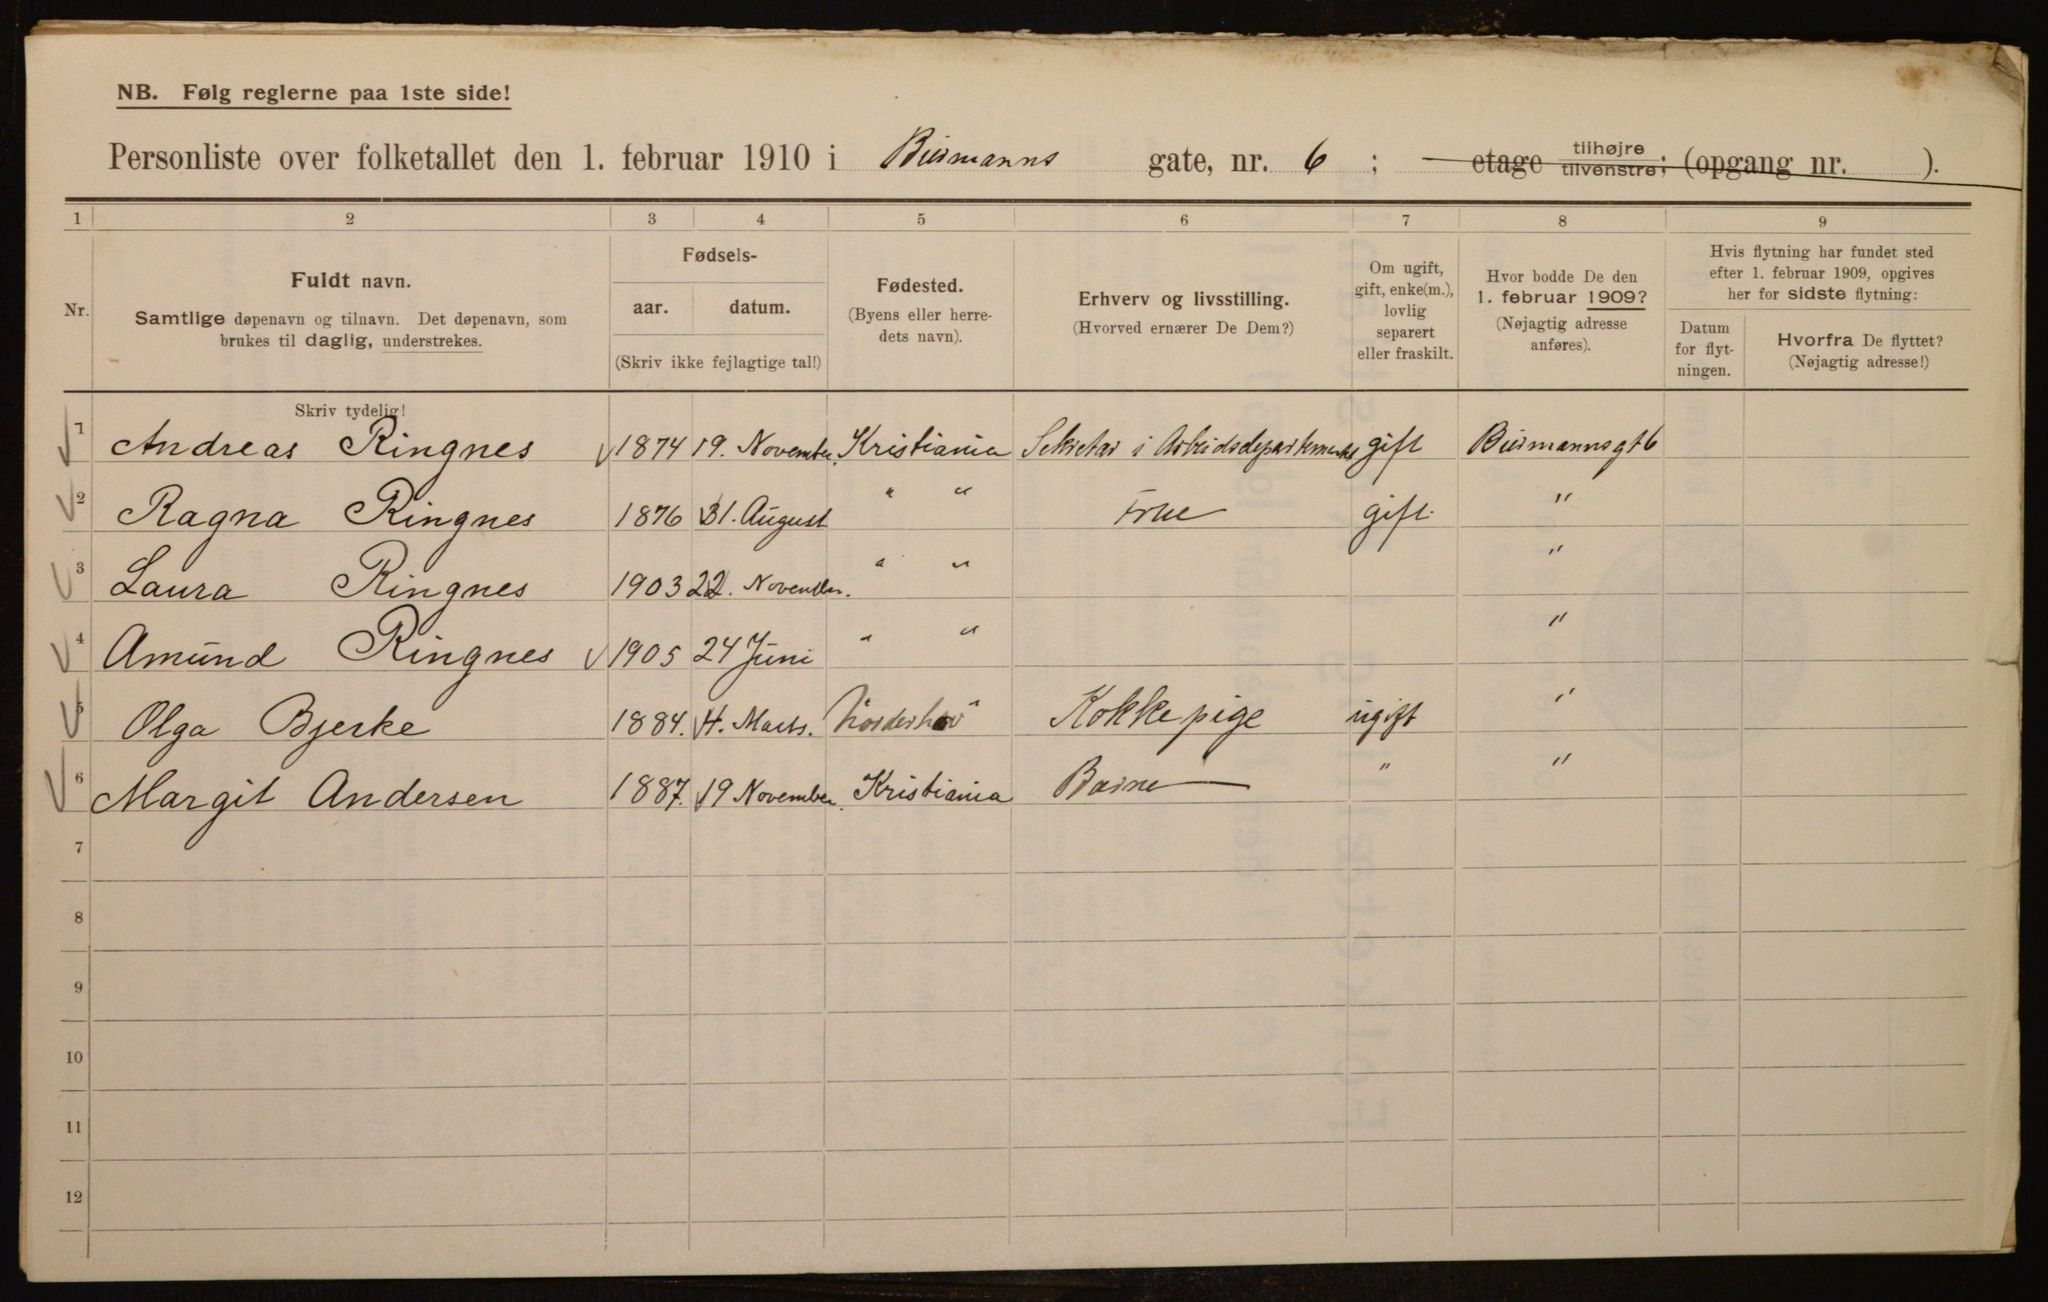 NB. Følg reglerne paa 1ste side!
Personliste over folketallet den 1. februar 1910 i Biermanns gate, nr. 6 ; — etage tilhøjre tilvenstre; (opgang nr. ).
1 2 3 4 5 6 7 8 9
Nr.
Fuldt navn.
Samtlige døpenavn og tilnavn. Det døpenavn, som
brukes til daglig, understrekes.
Fødsels-
aar. datum.
(Skriv ikke fejlagtige tal!)
Fødested.
(Byens eller herre-
dets navn).
Erhverv og livsstilling.
(Hvorved ernærer De Dem?)
Om ugift,
gift, enke(m.),
lovlig
separert
eller fraskilt.
Hvor bodde De den
1. februar 1909?
(Nøjagtig adresse
anføres).
Hvis flytning har fundet sted
efter 1. februar 1909, opgives
her for sidste flytning:
Datum
for flyt-
ningen.
Hvorfra De flyttet?
(Nøjagtig adresse!)
Skriv tydelig!
1 Andreas Ringnes 1874 19. November. Kristiania Sekretær i Arbeidsdepartementet gift Biermannsgt 6
2 Ragna Ringnes 1876 31. August " " Frue gift. "
3 Laura Ringnes 1903 22. November. " " "
4 Amund Ringnes 1905 24 Juni " " "
5 Olga Bjerke 1884. 4. Marts. Norderhov Kokkepige ugift "
6 Margit Andersen 1887. 19 November. Kristiania Barne — " "
7
8
9
10
11
12